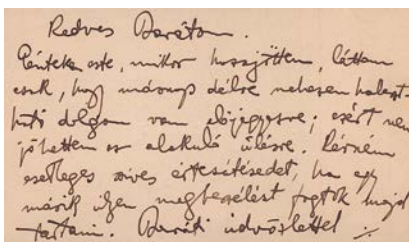 Kedves Barátom.
Pénteken este, mikor hazajöttem, láttam
csak, hogy másnap délre nehezen halaszt-
ható dolgom van előjegyezve; ezért nem
jöhettem az alakuló ülésre. Kérném
esetleges szives értesitésedet, ha egy
másik ilyen megbeszélést fogtok majd
tartani. Baráti üdvözlettel